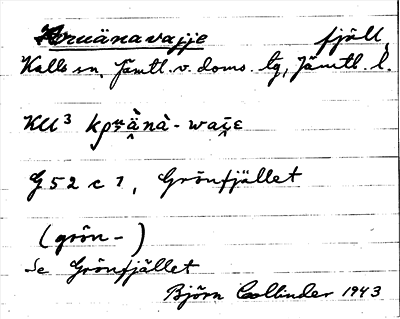 Kruänavajje fjäll,
Kalls sn. Jämtl. v. doms. tg, Jämtl. l.
KU³
G 52 c 1, Grönfjället
(grön-)
Se Grönfjället
Björn Collinder 1943